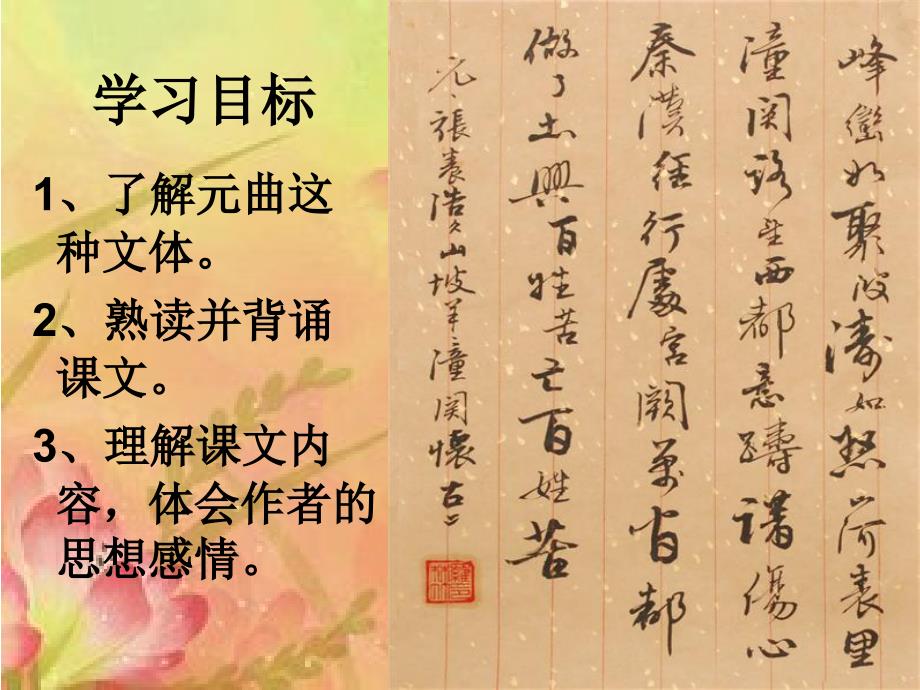 学习目标
1、了解元曲这
种文体。
2、熟读并背诵
课文。
3、理解课文内
容，体会作者的
思想感情。
峰巒如聚波濤如怒山河表里
潼関路望西都意躊躇傷心
秦漢經行處宮闕萬间都
做了土興百姓苦亡百姓苦
元張養浩山坡羊潼関懷古